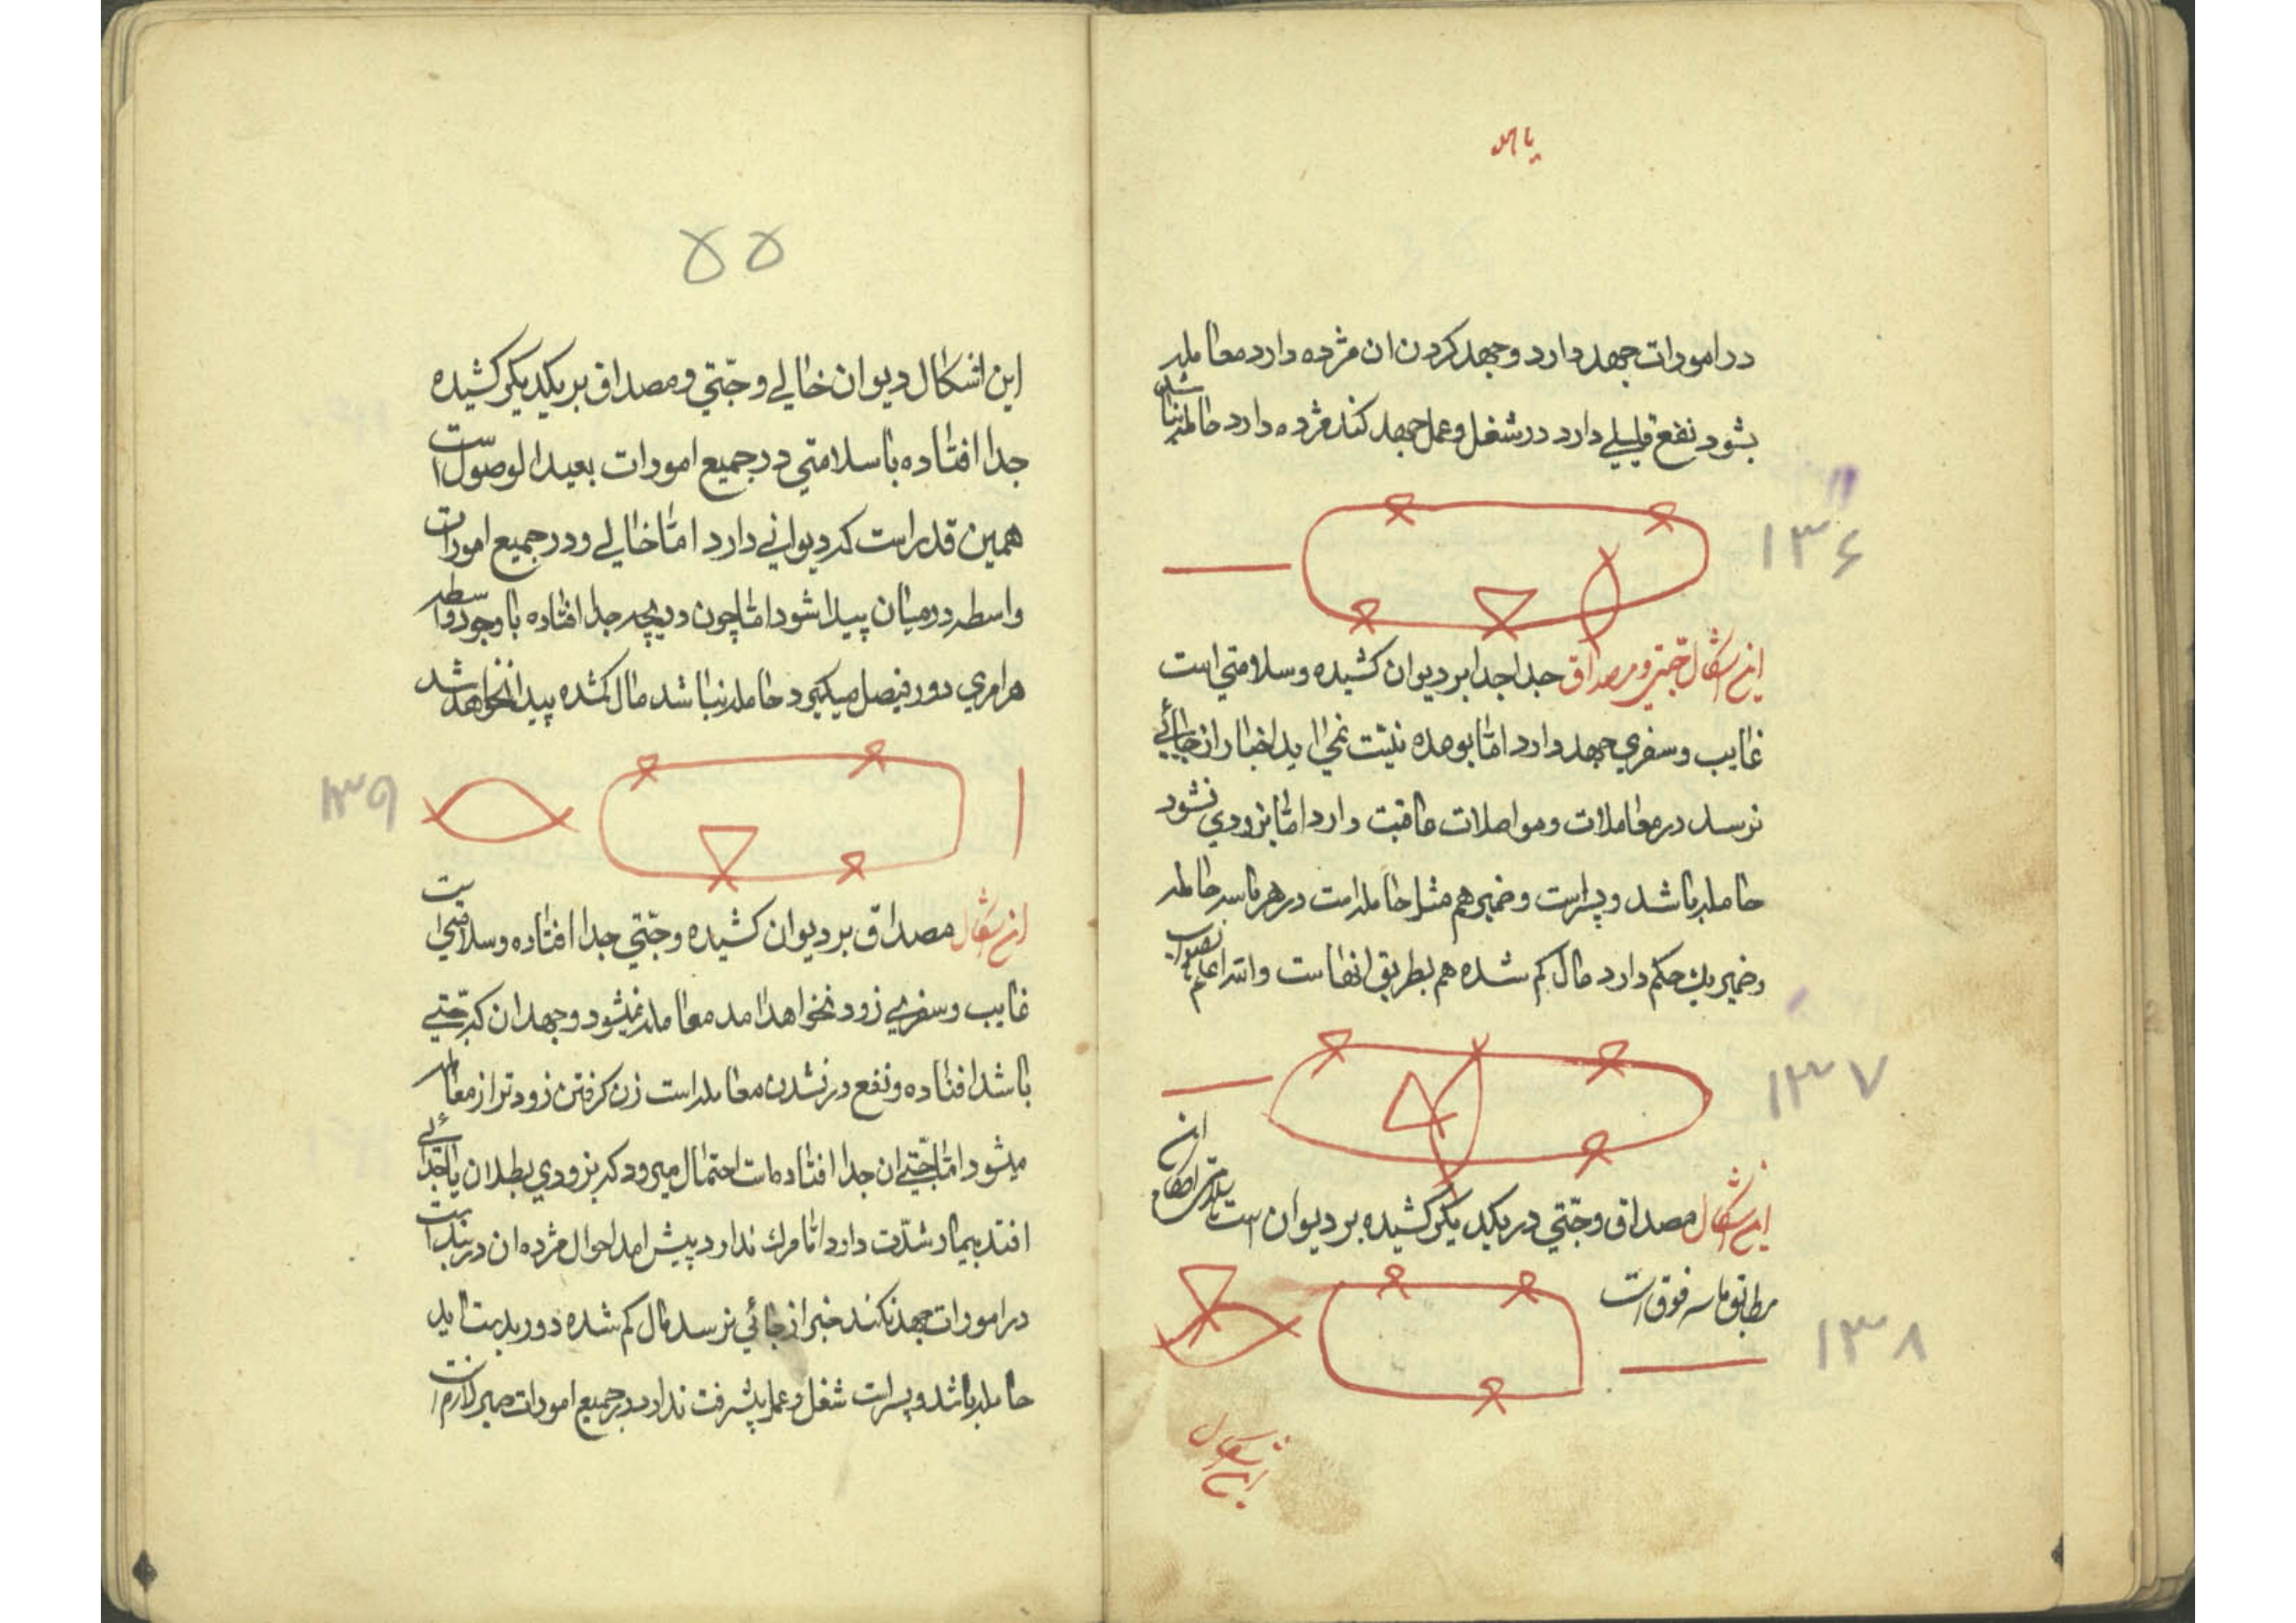 یا الله
در امورات جهد دارد و جهد کردن ان مژده دارد معامله
بشود نفع قلیلی دارد در شغل و عمل جهد کند مژده دارد حامله نباشد
۱۳۶
این اشکال جنتی و مصداق جدا جدا بر دیوان کشیده و سلامتی است
غایب و سفری جهد دارد اما بوعده نیت نمی اید اخبار از جائی
نرسد در معاملات و مواصلات عاقبت دارد اما بزودی نشود
حامله باشد و پسر است و ضمیر هم مثل حامله است در هر ماسه حامله
و ضمیر یک حکم دارد مال کم شده هم بطریق انها است و الله اعلم بالصواب
۱۳۷
این اشکال مصداق و جنتی در یکدیکر کشیده بر دیوان است این
مطابق ماسه فوق است
۱۳۸
این اشکال
۵۵
این اشکال دیوان خالی و جنتی و مصداق بر یکدیکر کشیده
جدا افتاده با سلامتی در جمیع امورات بعید الوصول است
همین قدر است که دیوانی دارد اما خالی و در جمیع امورات
واسطه در میان پیدا شود اما چون دریچه جدا افتاده با وجود واسطه
هر امری دور فیصل میکیرد حامله نباشد مال کمشده پیدا نخواهد شد
۱۳۹
این اشکال مصداق بر دیوان کشیده و جنتی جدا افتاده و سلامتی است
غایب و سفری زود نخواهد امد معامله نمیشود و جهد ان که جنتی
باشد افتاده و نفع در نشدن معامله است زن کرفتن زودتر از معامله
میشود اما جنتی ان جدا افتاده است احتمال میرود که بزودی بطلان یا جدائی
افتد بیمار شدت دارد اما مرک ندارد پیش امد احوال مژده ان در بند است
در امورات جهد نکند خبر از جائی نرسد مال کم شده دور بدست اید
حامله باشد و پسر است شغل و عمل پیشرفت ندارد در جمیع امورات صبر لازم است